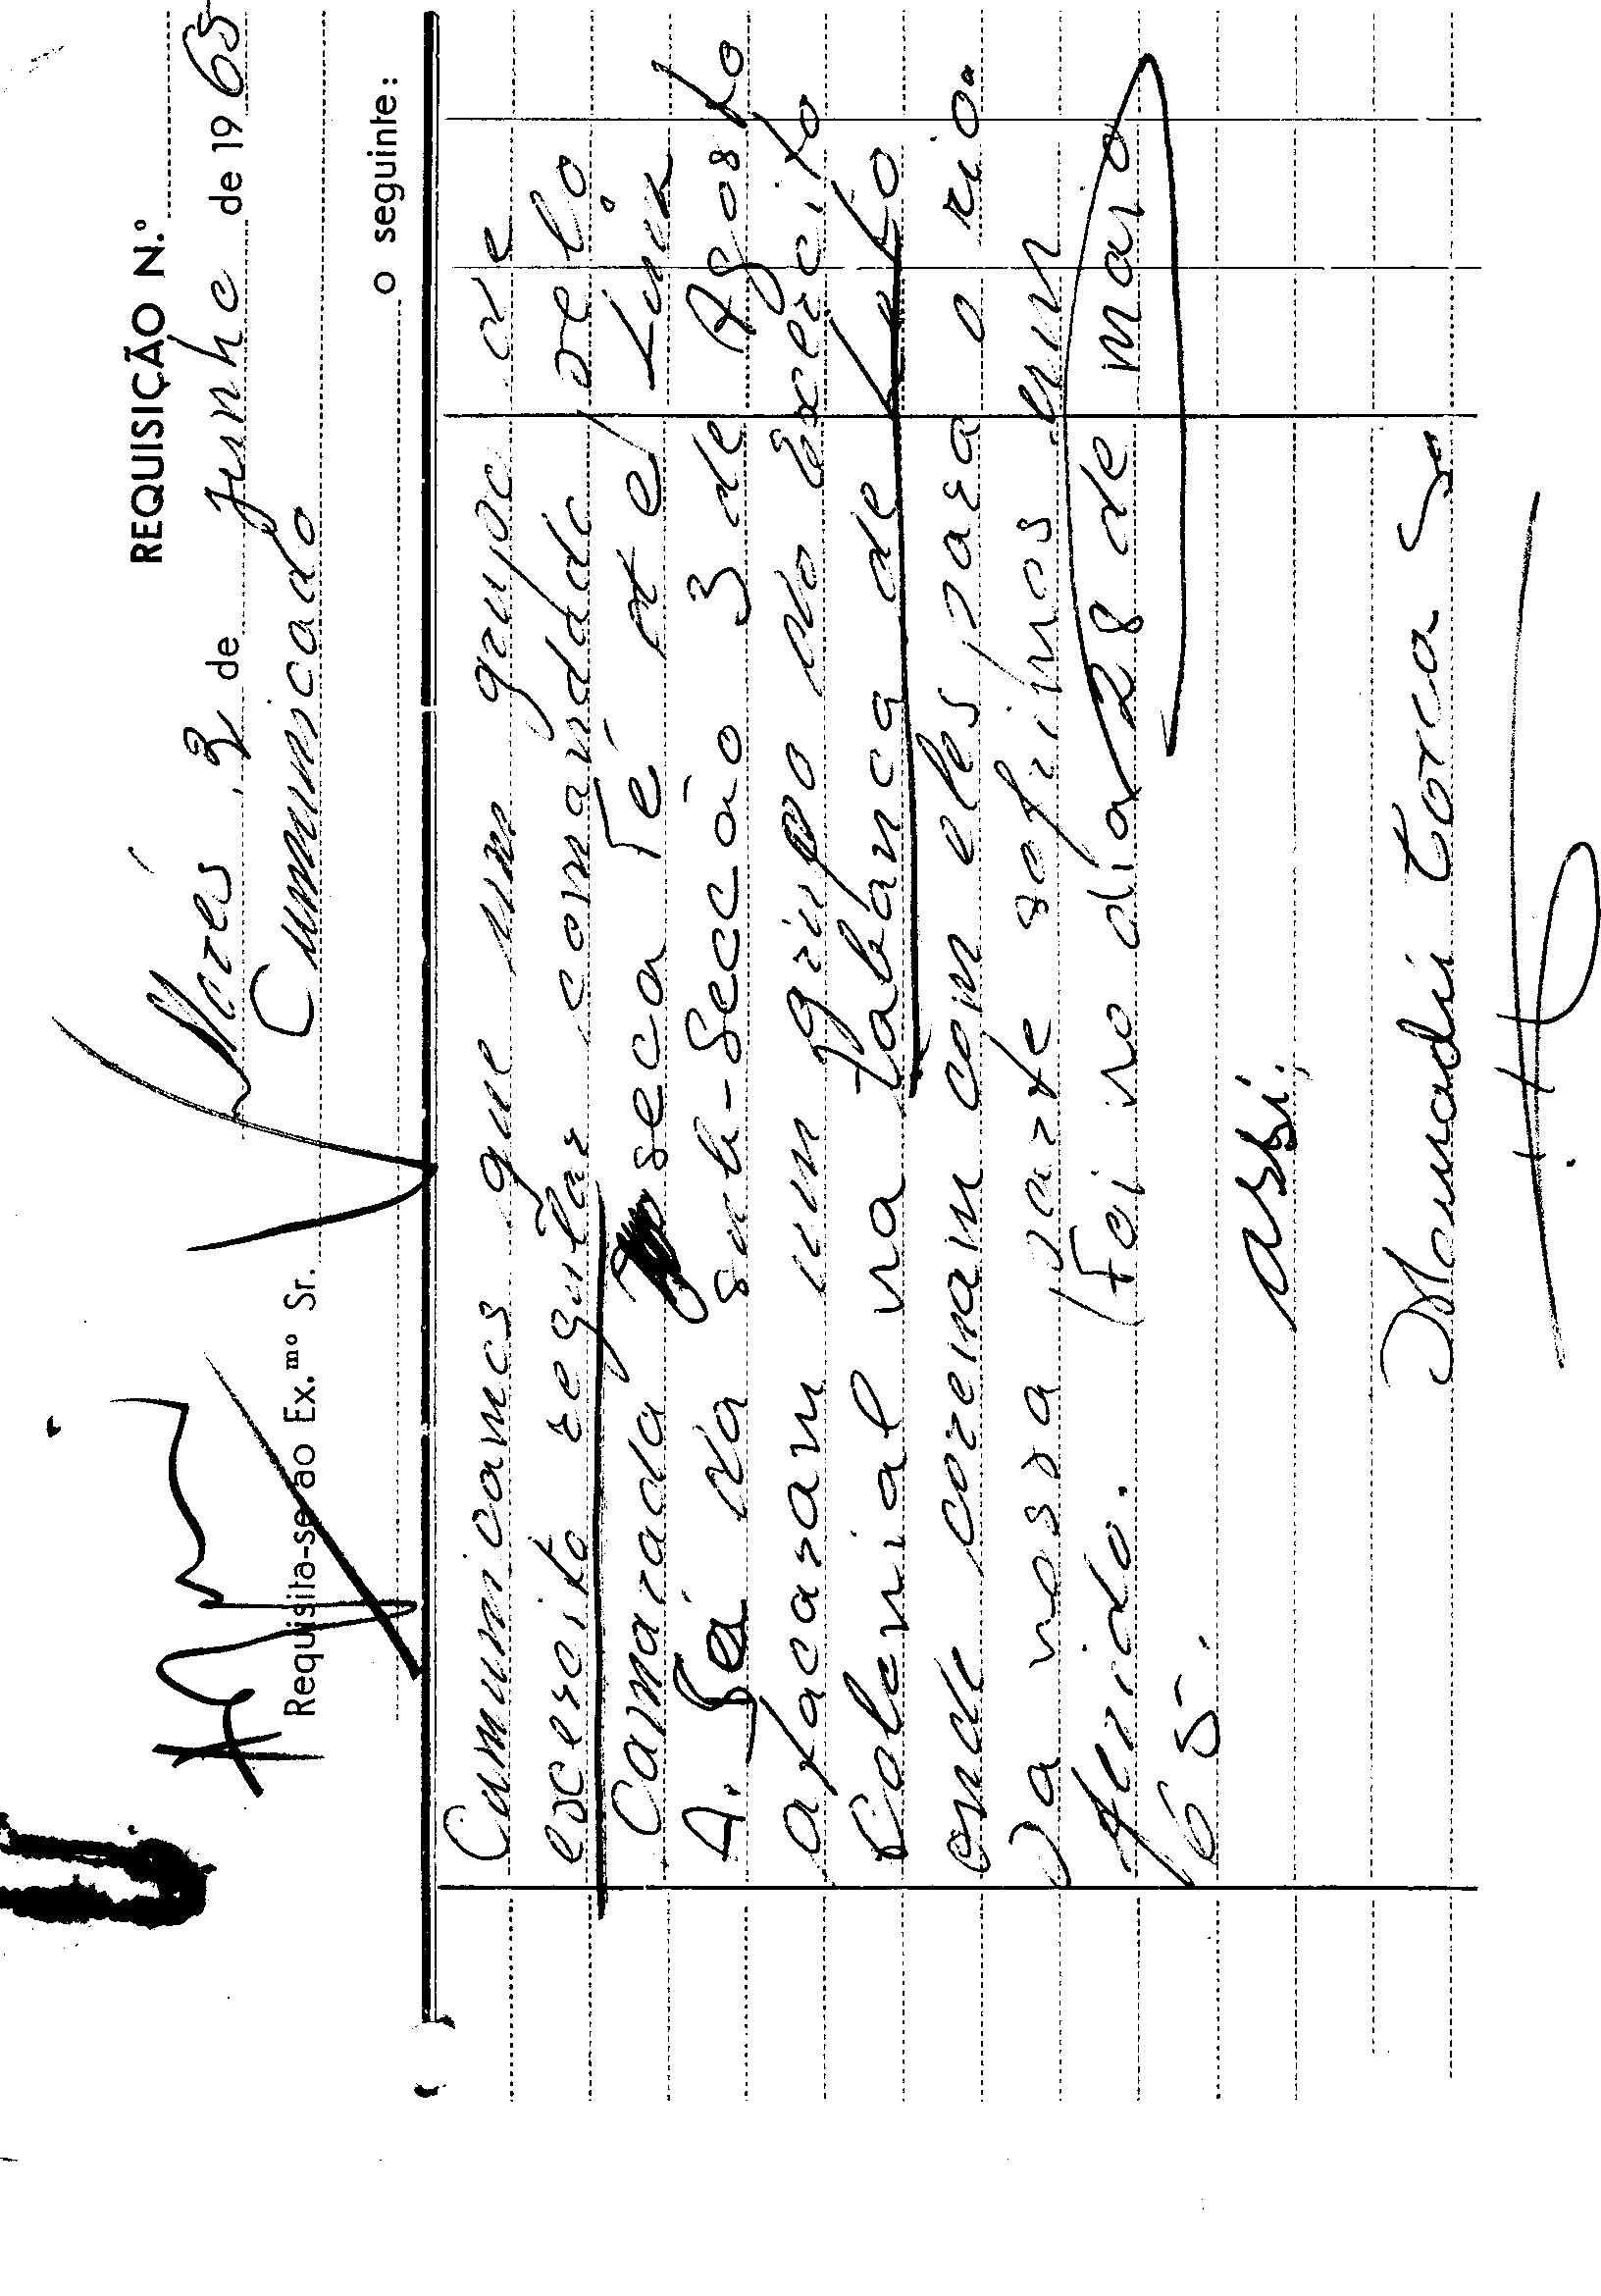 REQUISIÇÃO N.º
Morés, 3 de junho de 1965
Cumunicado
Requisita-se ao Ex.mo Sr.
o seguinte:
Cumunicamos que um grupo de
exercito regular comandado pelo
Camarada seca Té at e Luiz
A. Sá da Sub-Secção 3 de Agosto
atacaram um grupo do exercito
Colonial na tabanca de
onde coreram com eles para o rio.
da nossa parte sofrimos um
ferido. Foi no dia 28 de maio
65.
assi.
Mamadú torca